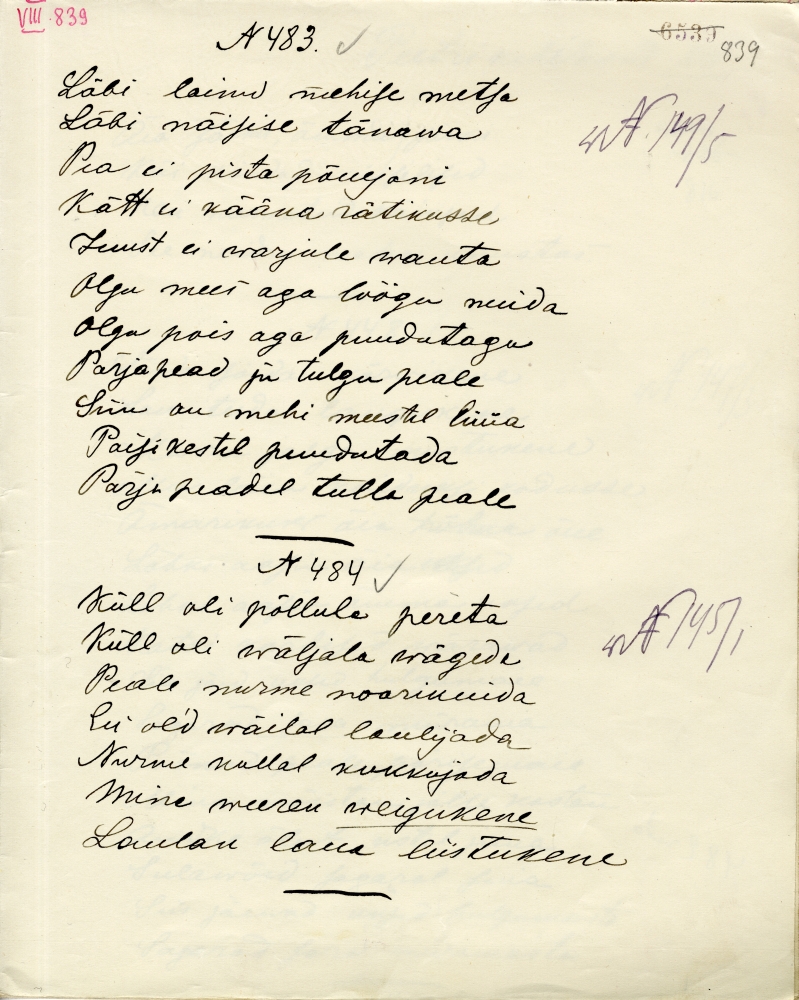 VIII 839
N 483.
6539
839
Läbi lainud mehise metsa
Läbi näisise tänawa
N. 149/5
Pea ei pista põueljani
Kätt ei kääna rätikusse
Juust ei warjule wauta
Olgu mees aga löögu muida
Olgu pois aga puudutagu
Pärjapead ju tulgu peale
Siin on mehi meestel lüüa
Poisikestel puudutada
Pärja peadel tulla peale
N 484
Küll oli põllula pereta
N 145/1
Küll oli wäljala wägeda
Peale nurme noorikuida
Ei old wäilal laulijada
Nurme nullal kukkujada
Mina weeren weigukene
Laulan laua liistukene